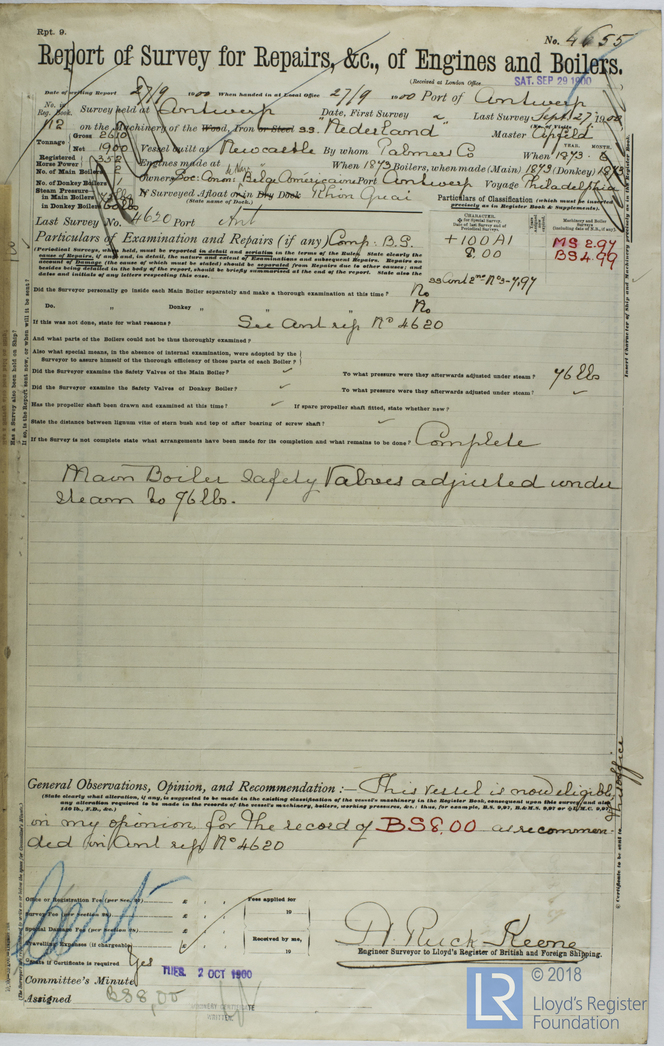 Rpt. 9.
No. 4655
Report of Survey for Repairs, &c., of Engines and Boilers.
(Received at London Office
SAT. SEP 29 1900
Date of writing Report 27/9 1900 When handed in at Local Office 27/9 1900 Port of Antwerp
No. in Reg. Book. Survey held at Antwerp Date, First Survey " Last Survey Sept. 27 1900
112 on the Machinery of the Wood, Iron or Steel ss. "Nederland" Master
Tonnage Gross
Net 1900 Vessel built at Newcastle By whom Palmers Co When 1873. 6
YEAR. MONTH.
Registered Horse Power 352 Engines made at When 1873 Boilers, when made (Main) 1873 (Donkey) 1873
No. of Main Boilers 2
No. of Donkey Boilers 1 Owners Soc. Anon: Belge Américaine Port Antwerp Voyage Philadelphia
Steam Pressure—
in Main Boilers
in Donkey Boilers If Surveyed Afloat or in Dry Dock Rhin Quai
(State name of Dock.)
Particulars of Classification (which must be inserted precisely as in Register Book & Supplements).
Last Survey No. 4620 Port Ant
Particulars of Examination and Repairs (if any) Comp: B.S.
+100A1
MS 2.97
BS 4.99
(Periodical Surveys, when held, must be reported in detail and seriatim in the terms of the Rules. State clearly the
cause of Repairs, if any, and, in detail, the nature and extent of Examinations and subsequent Repairs. Repairs on
account of Damage (the cause of which must be stated) should be separated from Repairs due to other causes; and
besides being detailed in the body of the report, should be briefly summarised at the end of the report. State also the
dates and initials of any letters respecting this case.
ss Ant 2nd No 3-7,97
Did the Surveyor personally go inside each Main Boiler separately and make a thorough examination at this time? No
Do. " Donkey " " " No
If this was not done, state for what reasons? See Ant rep No 4620
And what parts of the Boilers could not be thus thoroughly examined?
Also what special means, in the absence of internal examination, were adopted by the
Surveyor to assure himself of the thorough efficiency of those parts of each Boiler?
Did the Surveyor examine the Safety Valves of the Main Boiler? To what pressure were they afterwards adjusted under steam? 96 lbs
Did the Surveyor examine the Safety Valves of Donkey Boiler? To what pressure were they afterwards adjusted under steam?
Has the propeller shaft been drawn and examined at this time? If spare propeller shaft fitted, state whether new?
State the distance between lignum vitæ of stern bush and top of after bearing of screw shaft?
If the Survey is not complete state what arrangements have been made for its completion and what remains to be done? Complete
Main Boiler Safety Valves adjusted under
steam to 96 lbs.
General Observations, Opinion, and Recommendation :— This vessel is now eligible,
(State clearly what alteration, if any, is suggested to be made in the existing classification of the vessel's machinery in the Register Book, consequent upon this survey, and also
any alteration required to be made in the records of the vessel's machinery, boilers, working pressures, &c.; thus, for example, B.S. 9,97, B.&M.S. 9,97 or L.M.C. 9,97,
140 lb., F.D., &c.)
in my opinion, for the record of BS 8,00 as recommen-
ded in Ant rep No 4620
Office or Registration Fee (per Sec. 28) £ : : Fees applied for
Survey Fee (per Section 28) £ : : 19
Special Damage Fee (per Section 28) £ : :
Travelling Expenses (if chargeable) £ : : Received by me,
19
State if Certificate is required Yes
H Ruck-Keene
Engineer Surveyor to Lloyd's Register of British and Foreign Shipping.
Committee's Minute TUES. 2 OCT 1900
Assigned BS 8,00
MACHINERY CERTIFICATE
WRITTEN
LR
© 2018
Lloyd's Register
Foundation